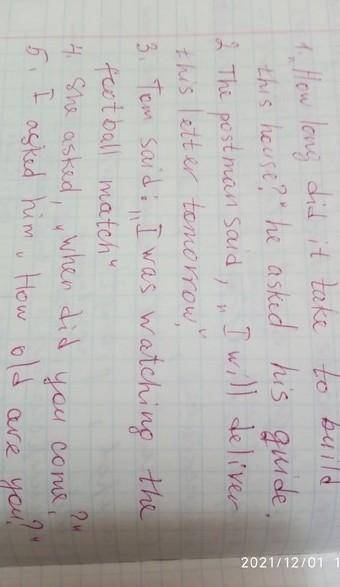 1. „How long did it take to build
this house?" he asked his guide.
2 The postman said, „I will deliver
this letter tomorrow."
3. Tom said: „I was watching the
football match"
4. She asked, „When did you come?"
5. I asked him „How old are you?"
2021/12/01 1